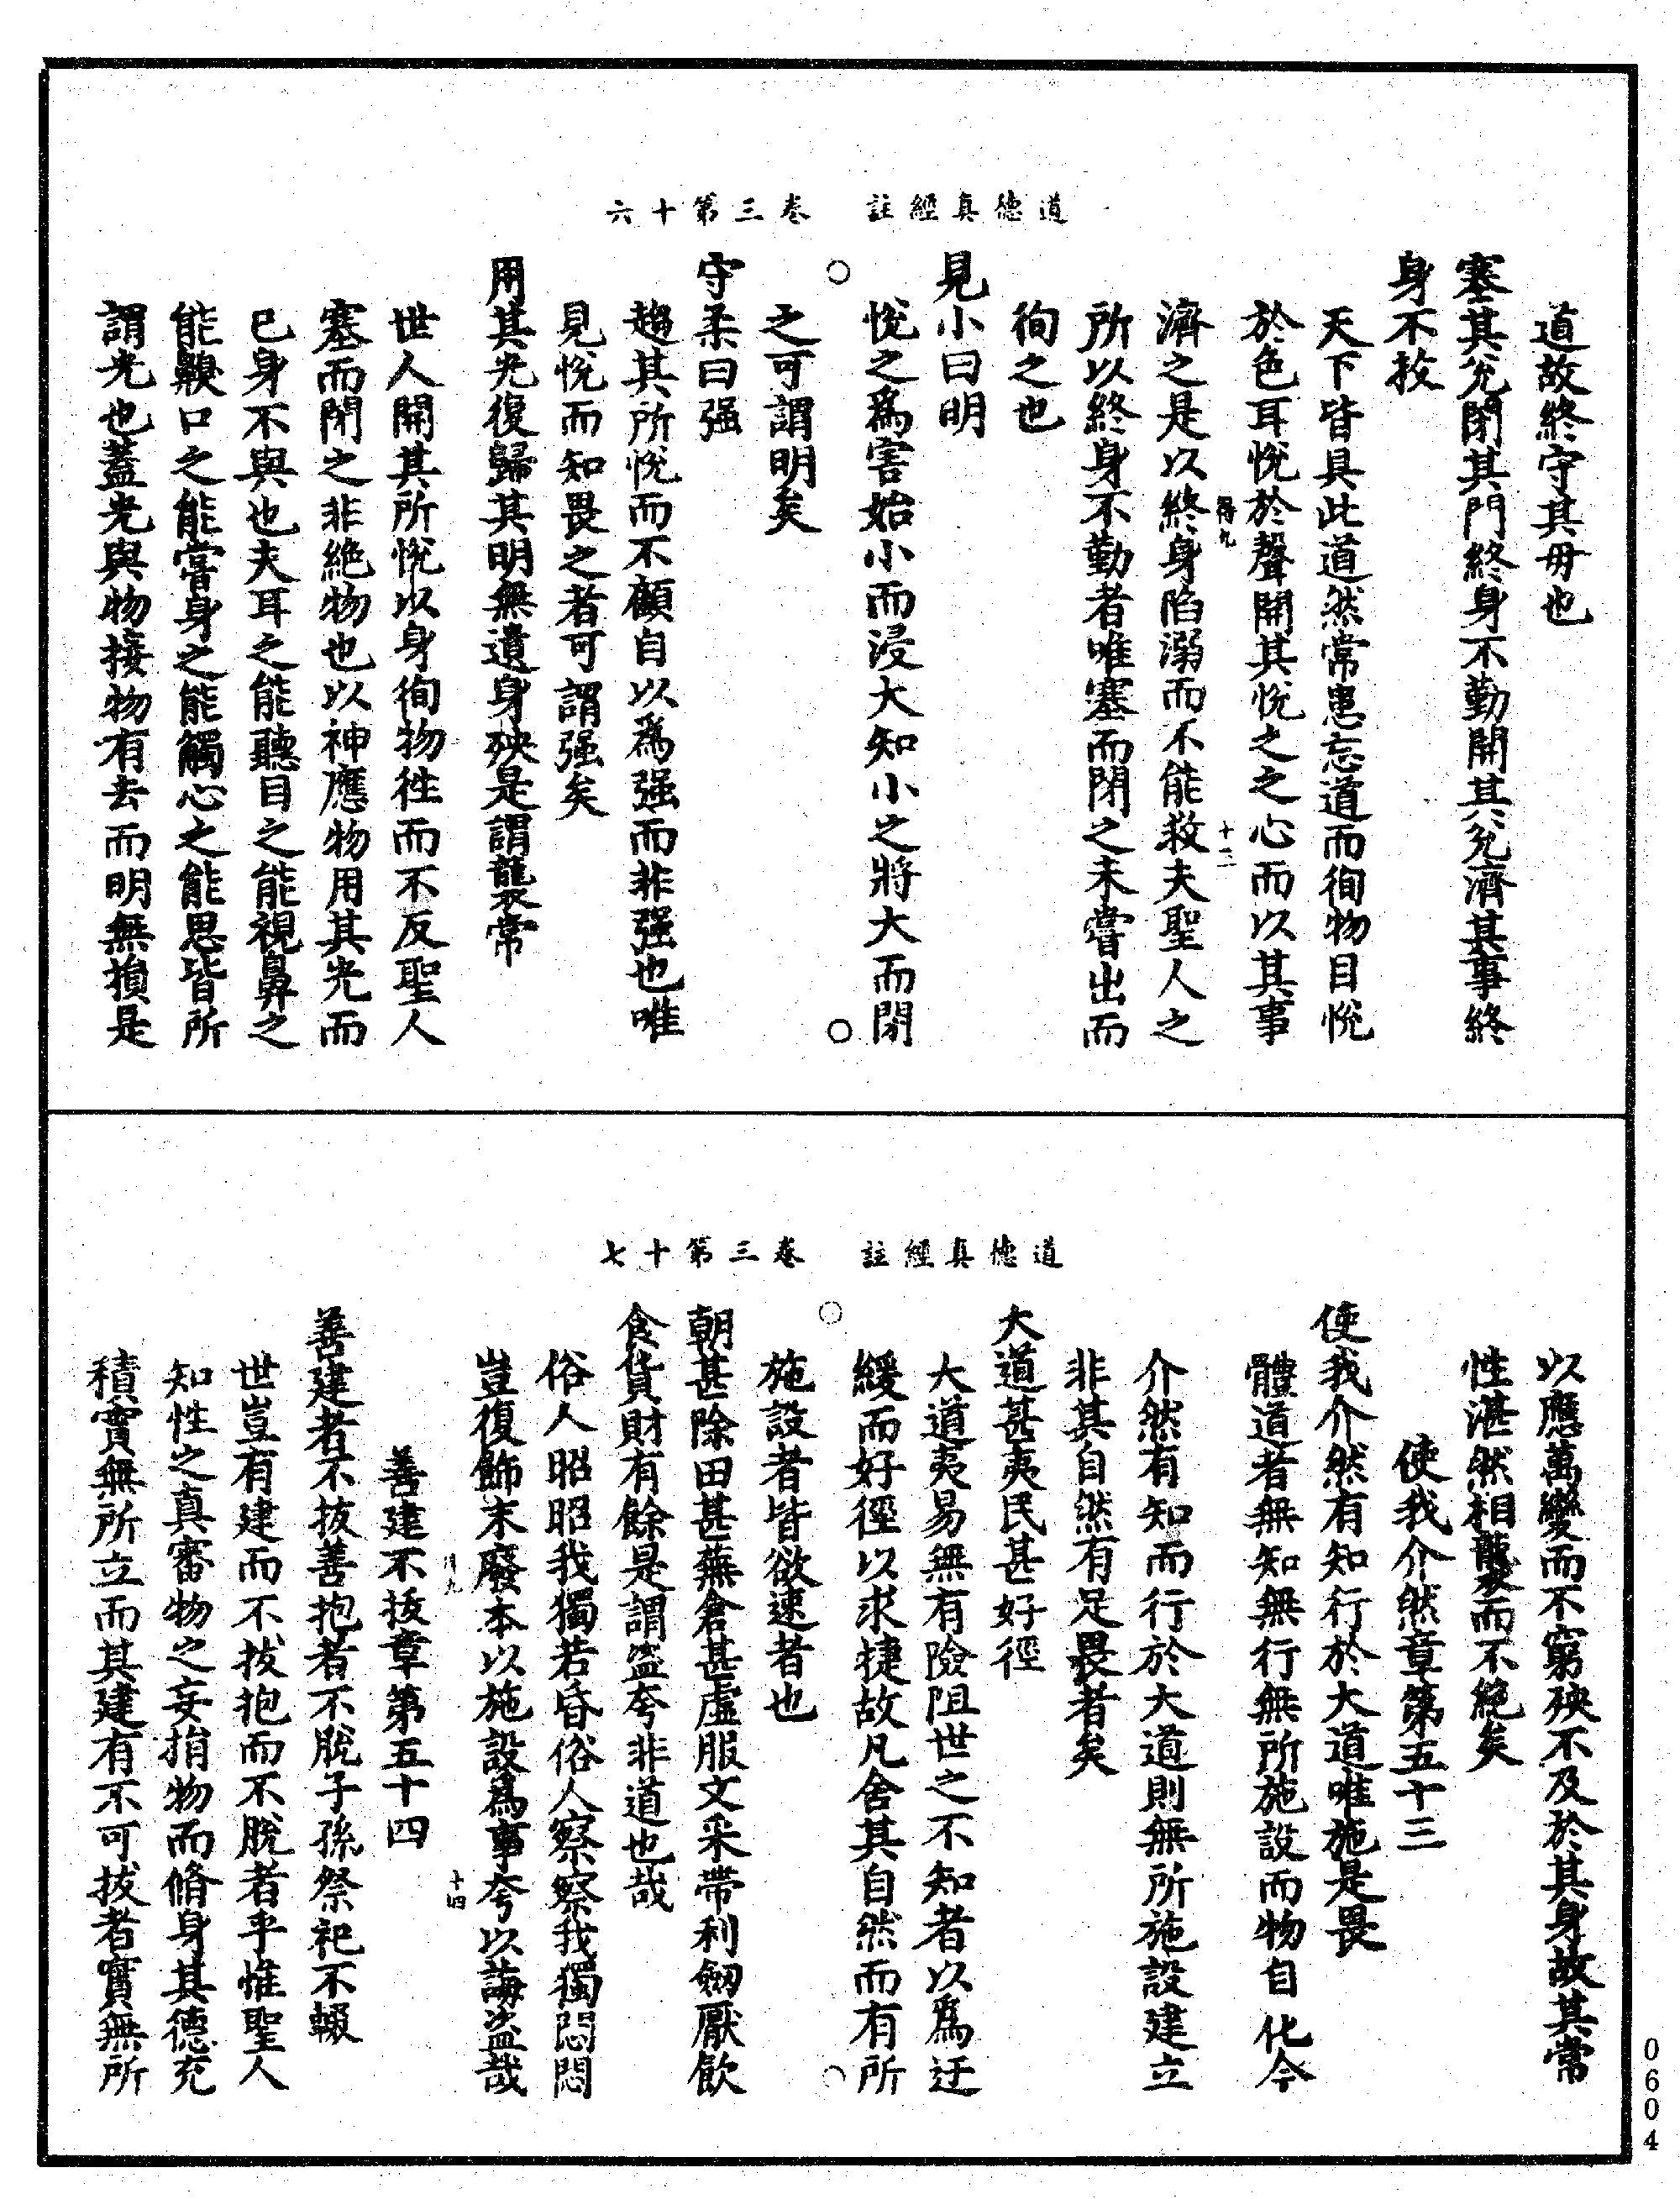 道德真經註　卷三第十六
道故終守其毋也
塞其兊閉其門終身不勤開其兊濟其事終
身不救
天下皆具此道然常患忘道而徇物目悅
於色耳悅於聲開其悅之之心而以其事
得九　十三
濟之是以終身陷溺而不能救夫聖人之
所以終身不勤者唯塞而閉之未嘗出而
徇之也
見小曰明
悅之爲害始小而浸大知小之將大而閉
之可謂明矣
守柔曰强
趨其所悅而不顧自以爲强而非强也唯
見悅而知畏之者可謂强矣
用其光復歸其明無遺身殃是謂襲常
世人開其所悅以身徇物徃而不反聖人
塞而閉之非絶物也以神應物用其光而
已身不與也夫耳之能聽目之能視鼻之
能齅口之能嘗身之能觸心之能思皆所
謂光也蓋光與物接物有去而明無損是
道德真經註　卷三第十七
以應萬變而不窮殃不及於其身故其常
性湛然相襲而不絶矣
使我介然章第五十三
使我介然有知行於大道唯施是畏
體道者無知無行無所施設而物自化今
介然有知而行於大道則無所施設建立
非其自然有足畏者矣
大道甚夷民甚好徑
大道夷易無有險阻世之不知者以爲迂
緩而好徑以求捷故凡舍其自然而有所
施設者皆欲速者也
朝甚除田甚蕪倉甚虛服文采帶利劒厭飲
食貨財有餘是謂盜夸非道也哉
俗人昭昭我獨若昏俗人察察我獨悶悶
豈復飾末廢本以施設爲事夸以誨盜哉
得九　十四
善建不拔章第五十四
善建者不拔善抱者不脫子孫祭祀不輟
世豈有建而不拔抱而不脫者乎惟聖人
知性之真審物之妄捐物而脩身其德充
積實無所立而其建有不可拔者實無所
0604